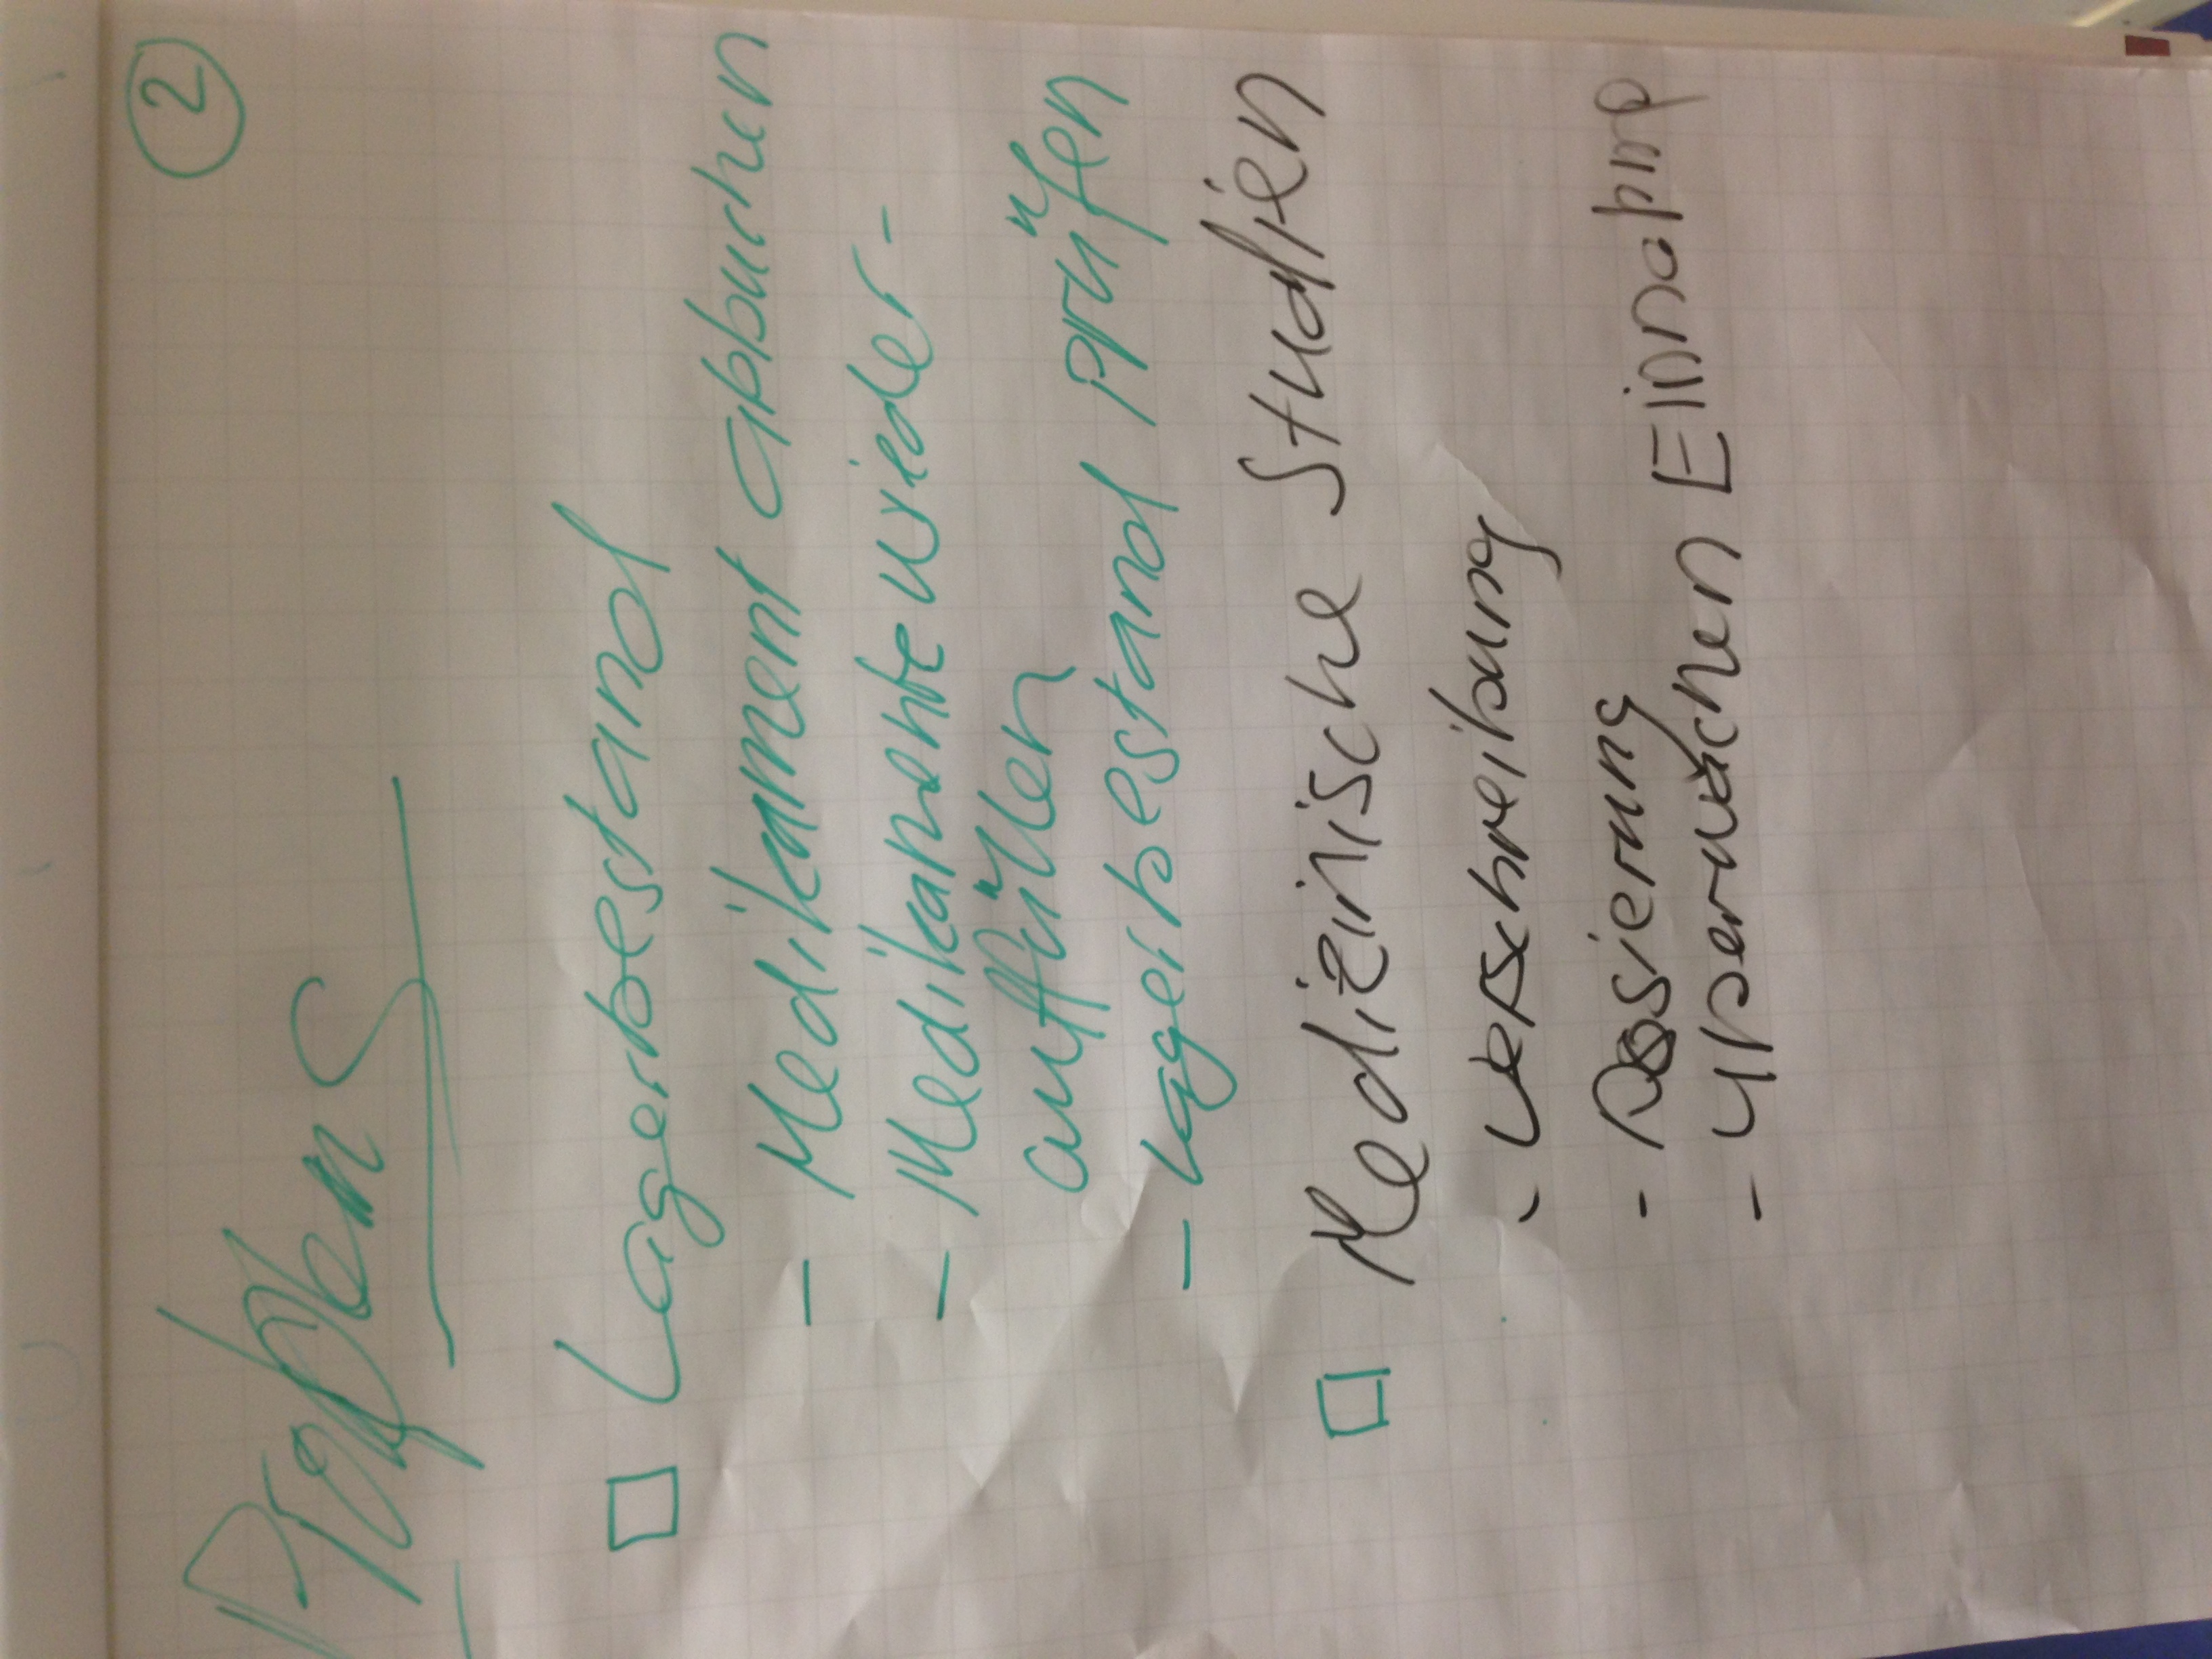 2
Problems
Lagerbestand
- Medikament abbuchen
- Medikamente wieder-
auffüllen
- Lagerbestand prüfen
Medizinische Studien
- Verschreibung
- Dosierung
- Überwachen Einnahme